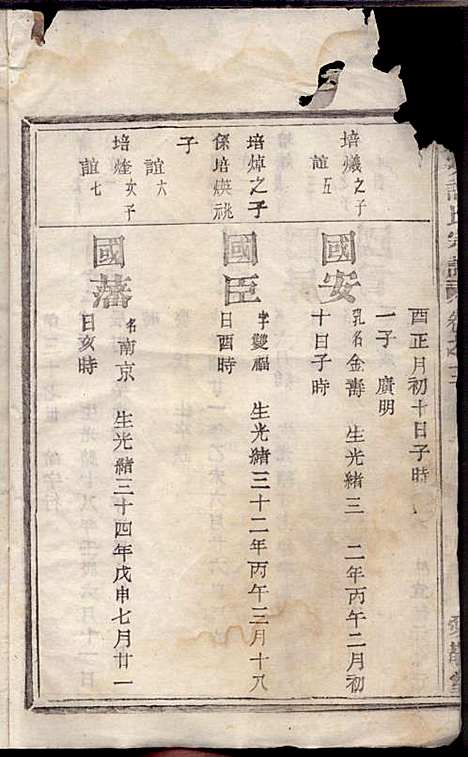 酉正月初十日子時
一子 廣明
培爔之子
誼五
國安
乳名金壽 生光緒三 二年丙午二月初
十日子時
培焯之子
係培煐祧
子
國臣
字雙福 生光緒三十二年丙午三月十八
日酉時
誼六
培煃次子
誼七
國藩
名南京 生光緒三十四年戊申七月廿一
日亥時